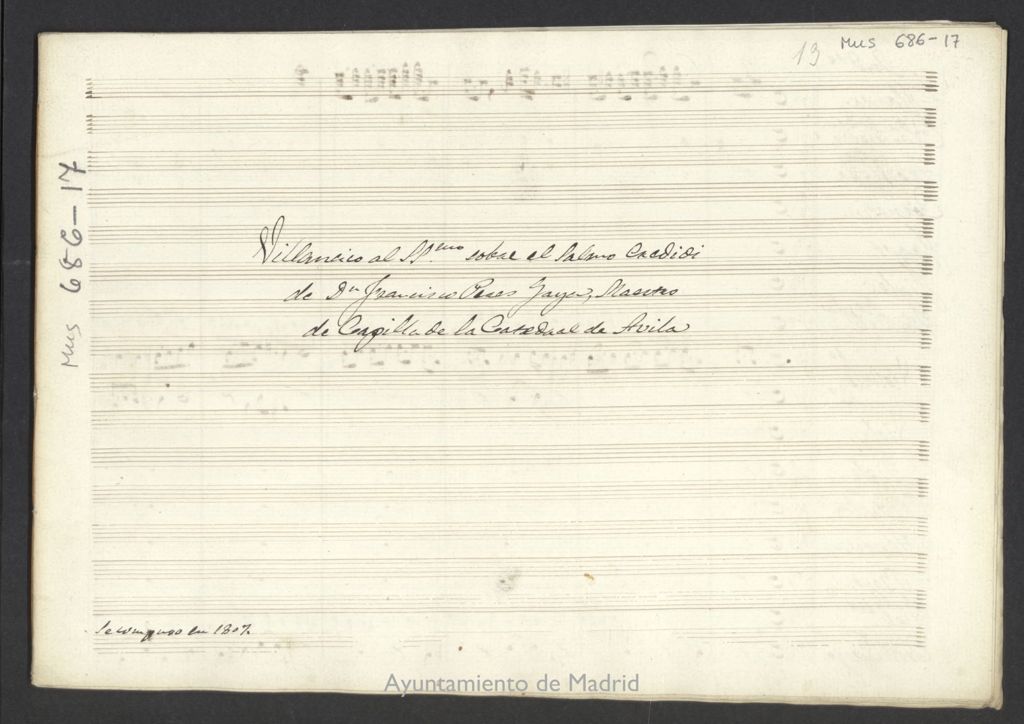 13
Mus 686-17
Mus 686-17
Villancico al SS.mo sobre el Salmo Credidi
de Dn Francisco Peres Gaya, Maestro
de Capilla de la Catedral de Avila
Se compuso en 1807.
Ayuntamiento de Madrid